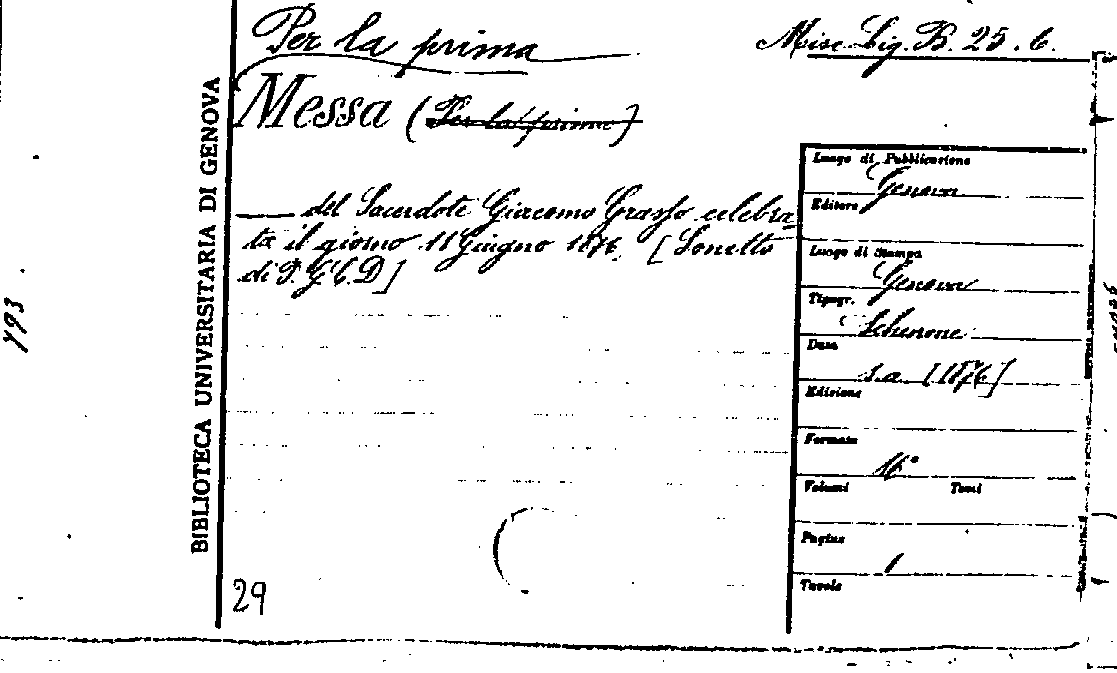 Per la prima
Misc. Lig. B. 25. 6.
Messa (Per la prima)
del Sacerdote Giacomo Grasso celebra-
ta il giorno 11 Giugno 1876. [Sonetto
di P. G. C. D]
29
BIBLIOTECA UNIVERSITARIA DI GENOVA
793
Luogo di Pubblicazione
Genova
Editore
Luogo di Stampa
Genova
Tipogr.
Schenone
Data
s.a. [1876]
Edizione
Formato
16°
Volumi Tomi
Pagine
1
Tavole